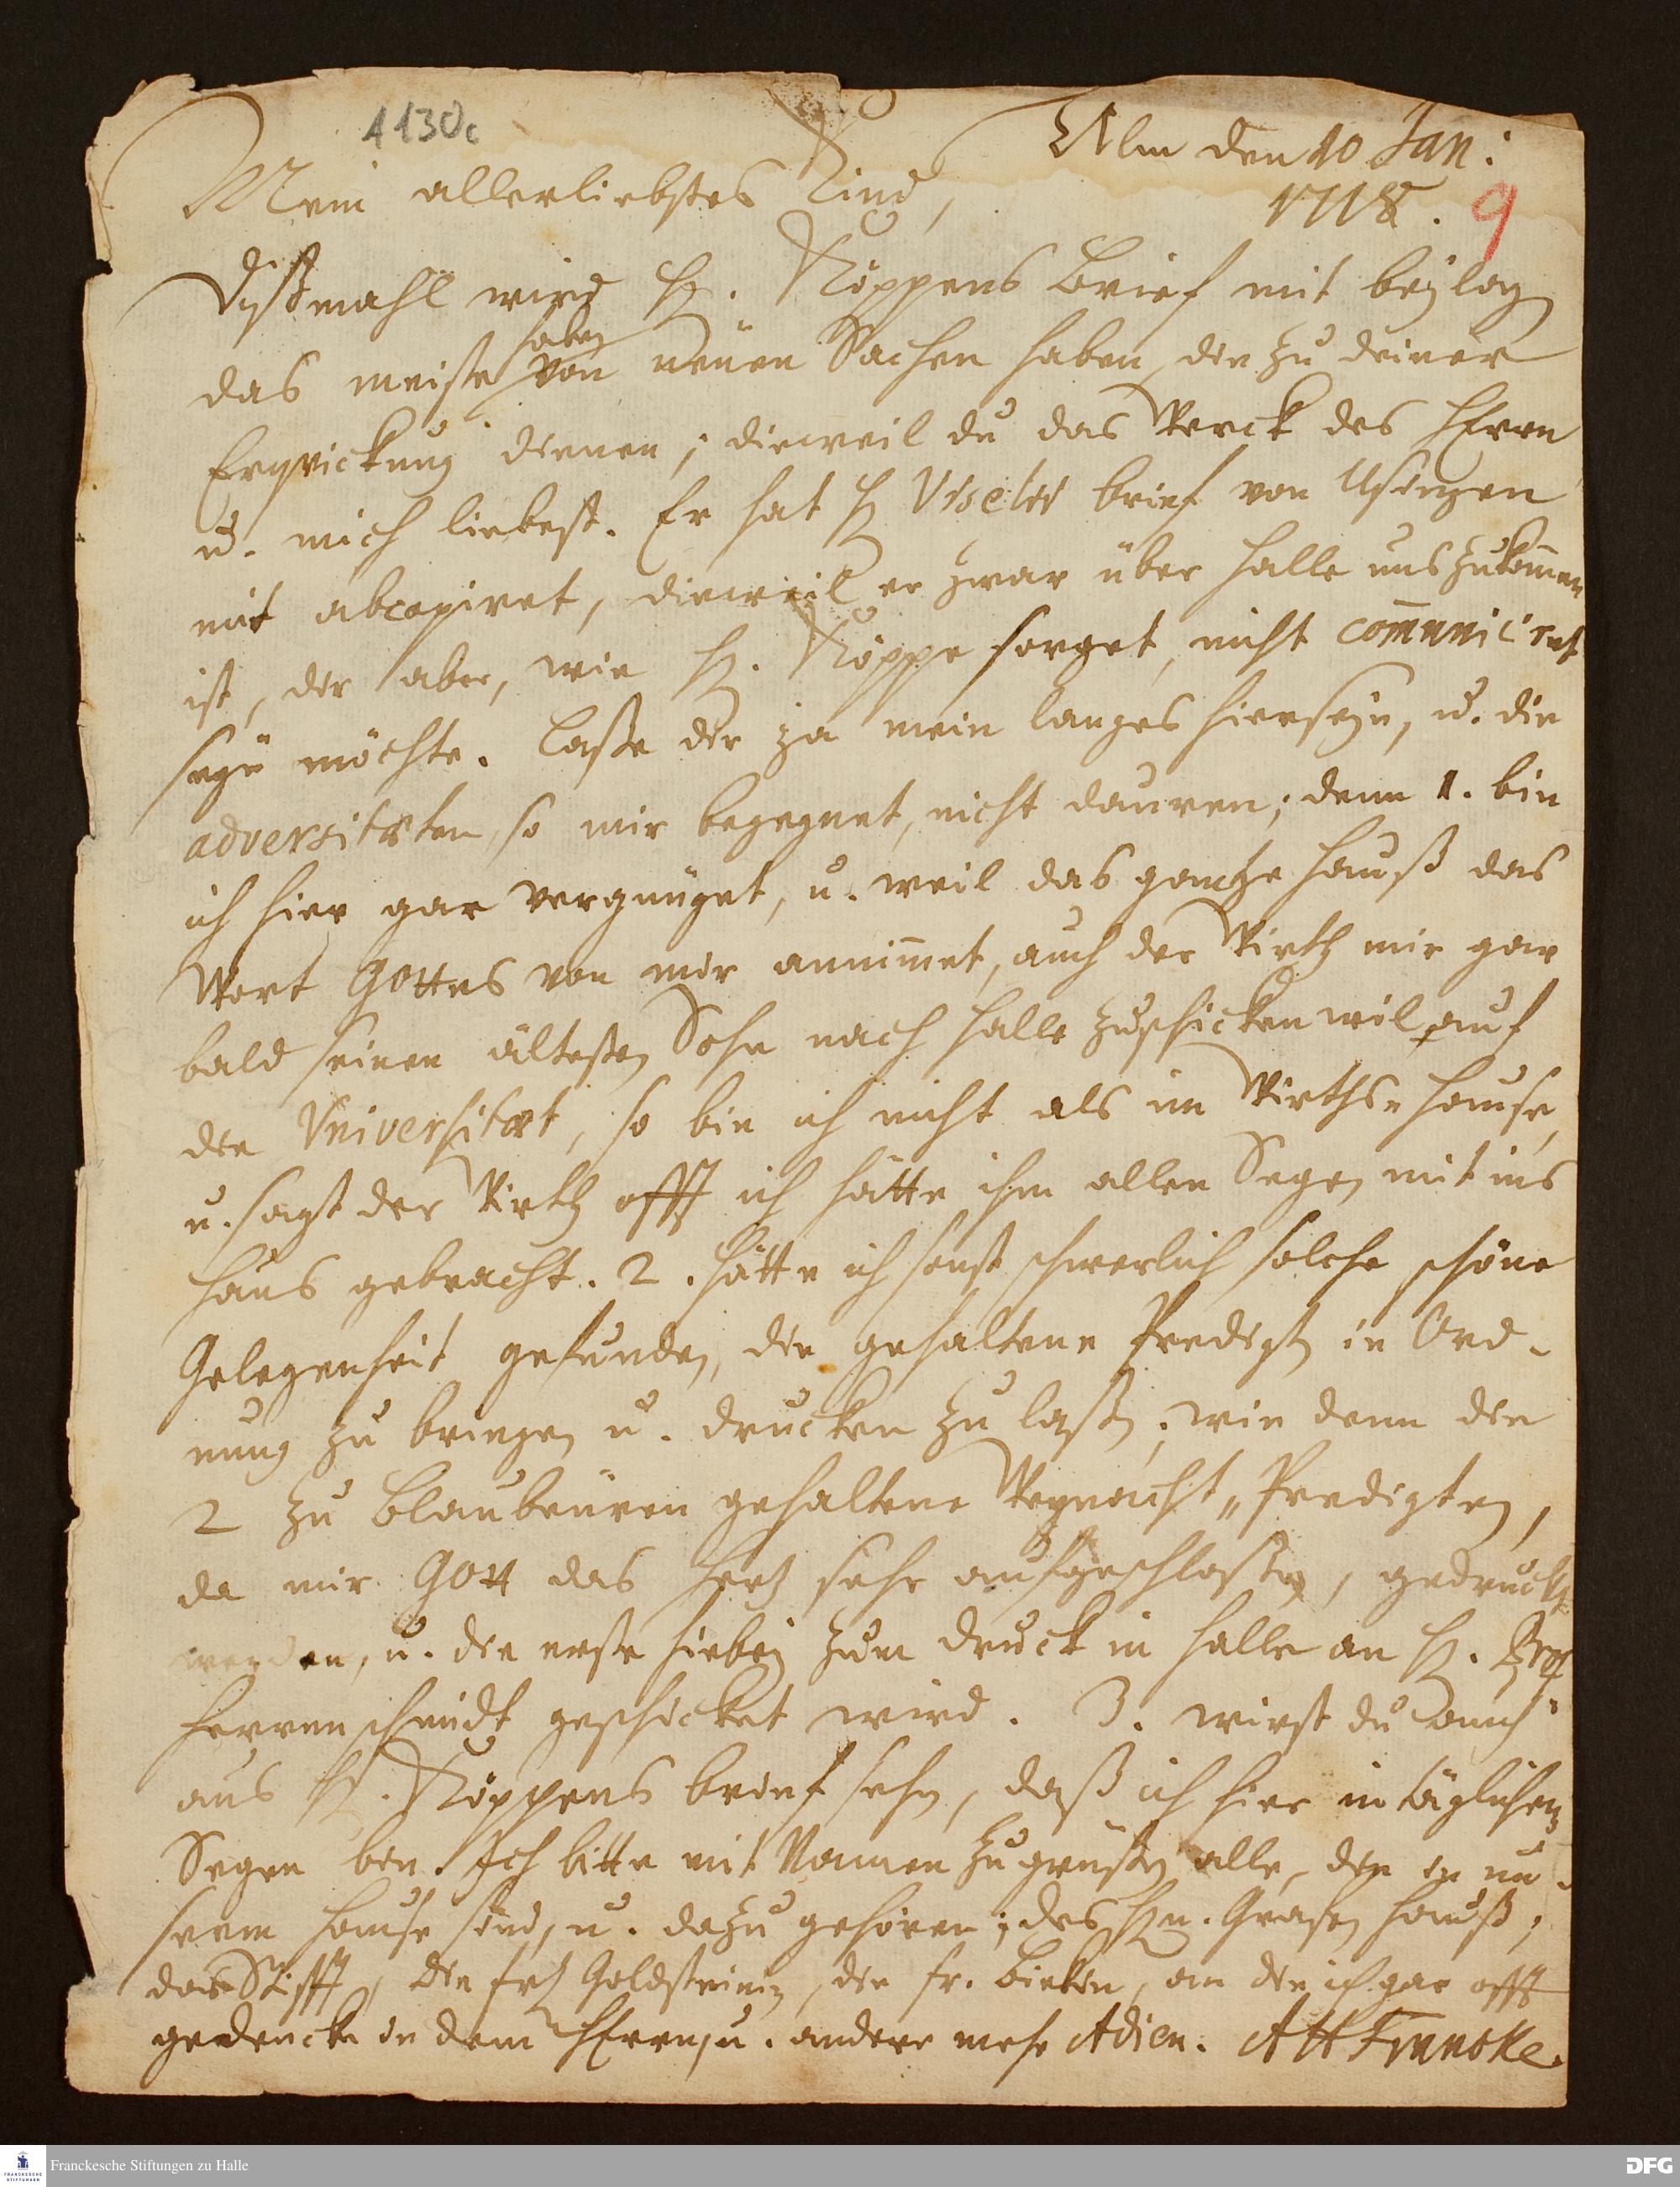 4130c
Ulm den 10 Jan:
Mein allerliebstes Kind,
1718. 9
Dißmahl wird H. Köppens Brief mit beylag
haben
das meiste von neüen Sachen haben, die zu deiner
Erqvickung dienen; dieweil du das Werck des HErrn
u. mich liebest. Er hat H brief von Usingen
mit abcopiret, dieweil er zwar über Halle uns zukom̄en
ist, dir aber, wie H. Köppe sorget, nicht com̄uniciret
seyn möchte. Laße dir ja mein langes hierseyn, u. die
adversitæten, so mir begegnet, nicht dauren; denn 1. bin
ich hier gar vergnüget, u. weil das gantze Hauß das
Wort Gottes von mir annim̄et, auch der Wirth mir gar
bald seinen ältesten Sohn nach Halle zuschicken wil auf
die Universitæt, so bin ich nicht als im Wirths-Hause,
u. sagt der Wirth offt ich hätte ihm allen Segen mit ins
Haus gebracht. 2. hätte ich sonst schwerlich solche schöne
Gelegenheit gefunden, die gehaltene Predigten in Ord-
nung zu bringen u. drucken zu laßen; wie denn die
2 zu Blaubeüren gehaltene Weynacht-Predigten,
da mir GOtt das Hertz sehr aufgeschloßen, gedruckt
werden, u. die erste hiebey zum druck in Halle an H. Prof
Herrnschmidt geschicket wird. 3. wirst du auch
aus H. Köppens brief sehen, daß ich hier in täglichen
Segen bin. Ich bitte mit Namen zu grüßen alle, die in un-
serm Hause sind, u. dazu gehören; des Hrn. Grafen Hauß,
das Stifft, die Goldsteinin, die Fr. an die ich gar offt
gedencke in dem HErrn, u. andere mehr Adieu. AHFrancke.
FRANCKESCHE STIFTUNGEN
Franckesche Stiftungen zu Halle
DFG